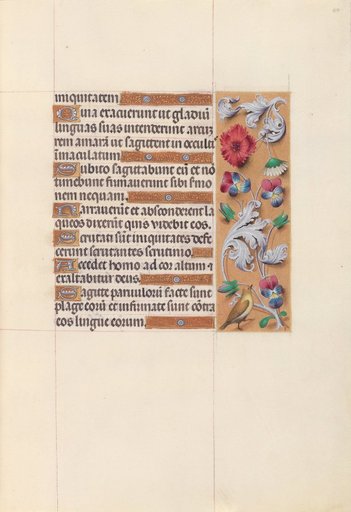 iniquitatem
Quia exacuerunt ut gladiū
linguas suas intenderunt arcū
rem amarā ut sagittent in occulto
īmaculatum
Subito sagittabunt eū et nō
timebunt firmauerunt sibi sermo
nem nequam
Narrauerūt et absconderent la
queos dixerūt quis videbit eos
Scrutati sūt iniquitates defe
cerunt scrutantes scrutinio
Accedet homo ad cor altum ⁊
exaltabitur deus
Sagitte paruulorū facte sunt
plage eorū et infirmate sunt cōtra
eos lingue eorum